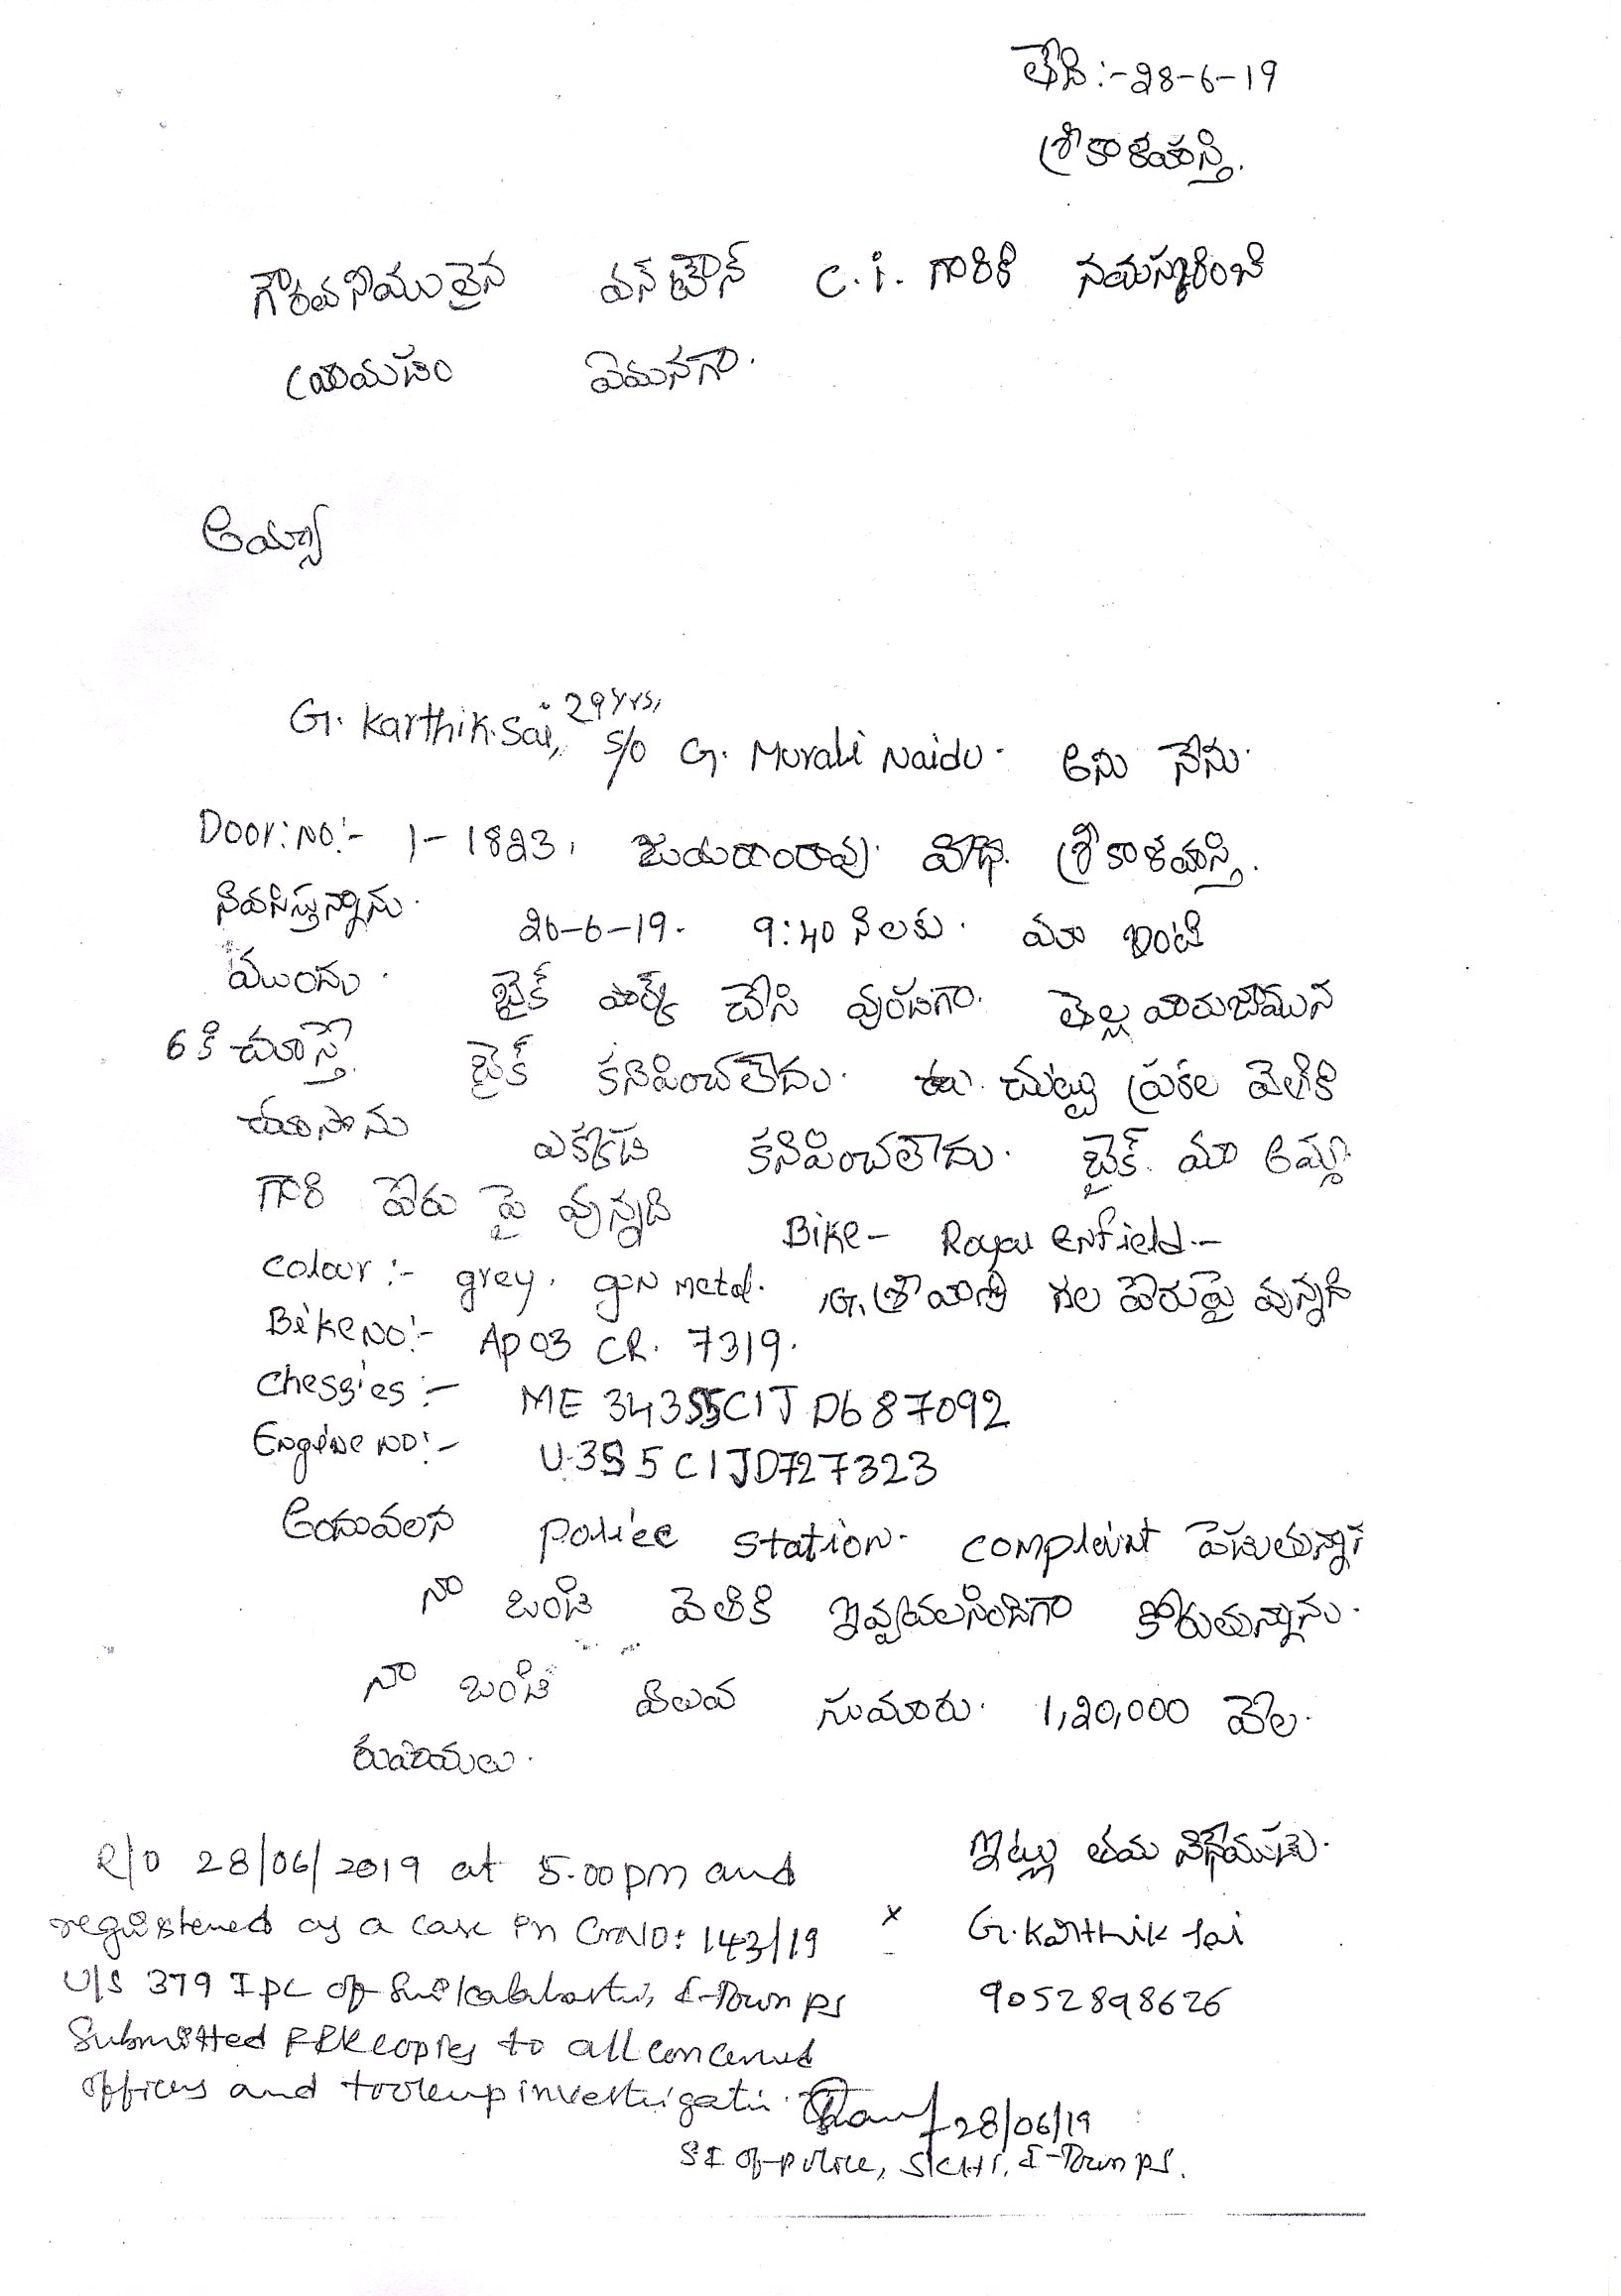 తేది :- 28-6-19
శ్రీకాళహస్తి.
గౌరవనీయులైన వన్ టౌన్ C.i. గారికి నమస్కరించి
వ్రాయడం ఏమనగా.
అయ్యా
G. Karthik.Sai, 29 yrs, S/o G. Murali Naidu. అను నేను.
Door: No:- 1-1823, జయరాంరావు వీధి. శ్రీకాళహస్తి.
నివసిస్తున్నాను. 26-6-19. 9:40 ని లకు. మా ఇంటి
ముందు. బైక్ పార్క్ చేసి వుండగా. తెల్లవారుజామున
6 కి చూస్తే. బైక్ కనిపించలేదు. చుట్టు ప్రకల వెతికి
చూసాను ఎక్కడ కనిపించలేదు. బైక్. మా అమ్మ
గారి పేరు పై వున్నది Bike - Royal enfield.-
Colour :- grey. gun metal. G. శ్రావాణి గల పేరుపై వున్నది
Bike No:- Ap 03 CR. 7319.
Chessies :- ME 34355C1J D687092
Engine no:- U.3S5C1JD727323
అందువలన police station. complaint పెడుతున్నా
నా బండి వెతికి ఇవ్వవలసిందిగా కోరుతున్నాను.
నా బండి విలువ సుమారు. 1,20,000 వేల.
రుపాయలు.
ఇట్లు తమ విధేయుడు.
x G. Karthik Sai
9052898626
R/o 28/06/2019 at 5.00pm and
registered as a case in Cr.No: 143/19
U/S 379 IPC of Srikalahasti, I-Town PS
Submitted FIR copies to all concerned
officers and took up investigati.
28/06/19
S.I of police, SKHT, I-Town PS.